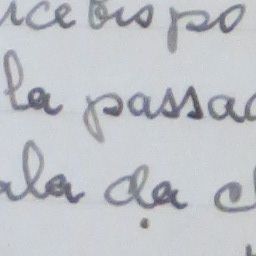 cebispo
la passa
ala da c